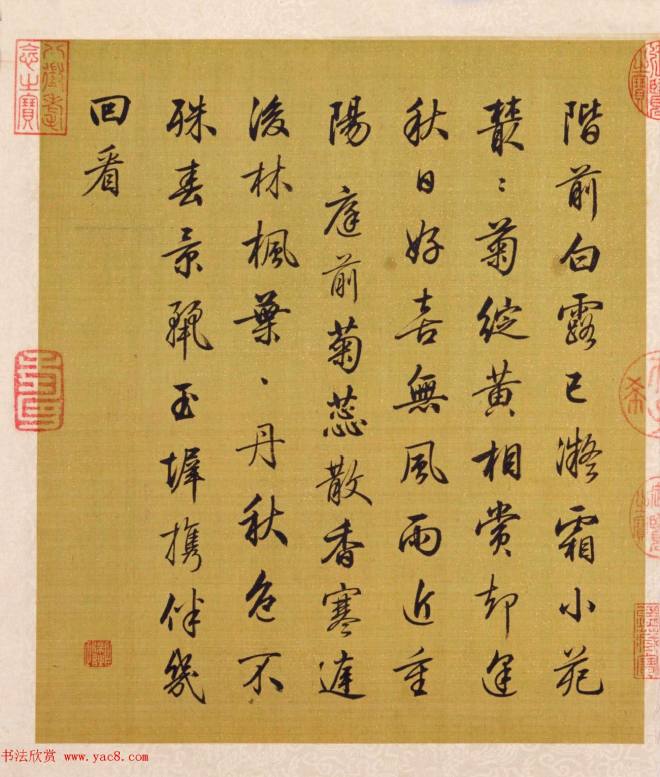 階前白露已凝霜小苑
叢〻菊綻黃相賞却逢
秋日好喜無風雨近重
陽 庭前菊蕊散香寒
後林楓葉〻丹秋色不
殊春景麗玉墀攜伴幾
回看
八徵耄念之寶
书法欣赏 www.yac8.com